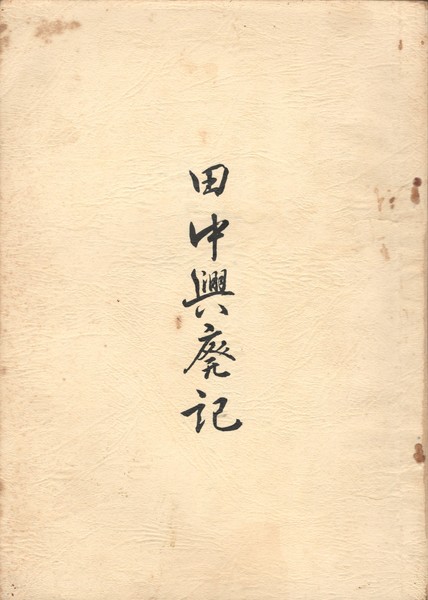 田中興廃記